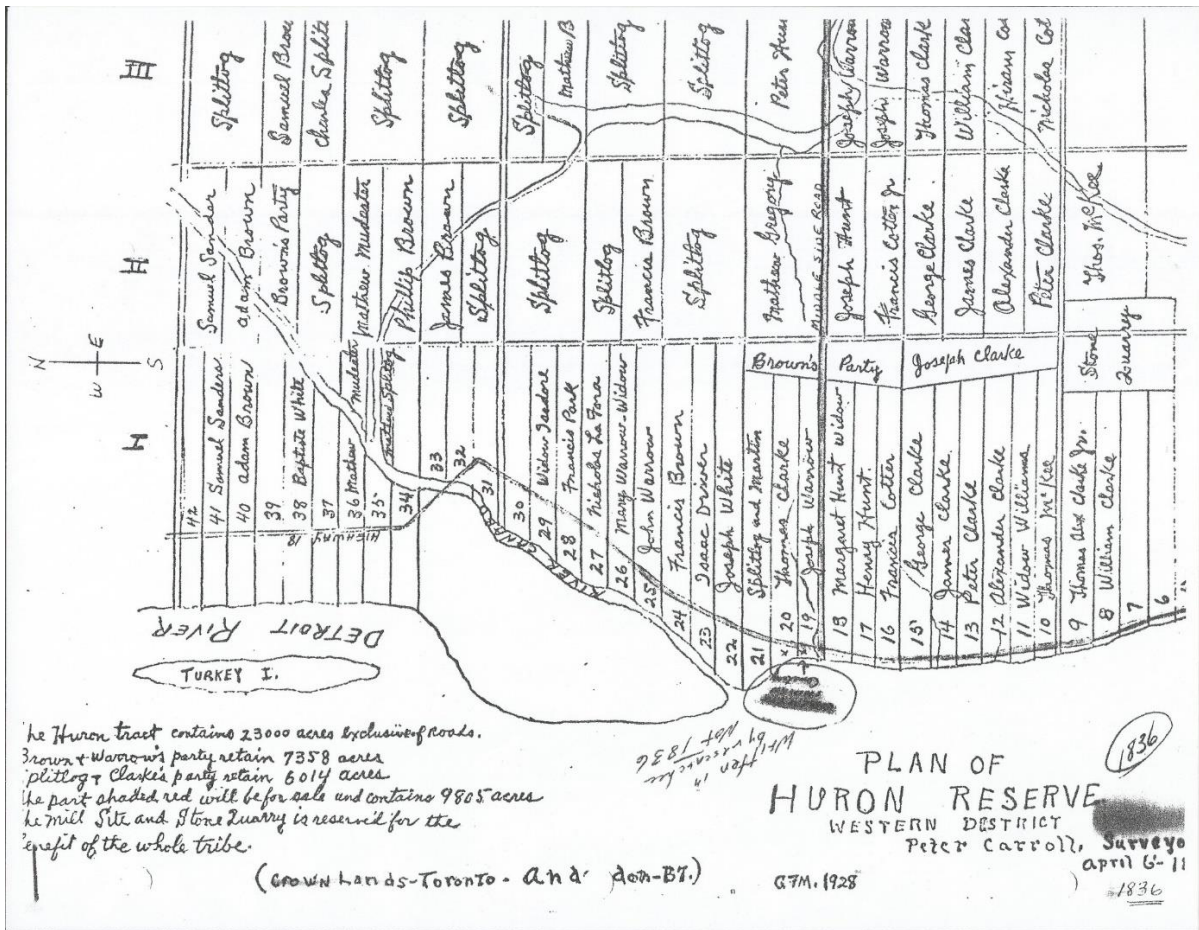 III
Splitlog
Samuel Brow
Charles Splitl
Splitlog
Splitlog
Splitlog
Mathew B
Splitlog
Splitlog
Peter Hun
Joseph Warrow
Joseph Warrow
Thomas Clarke
William Clar
Hiram Cot
Nicholas Cot
II
Samuel Sander
Adam Brown
Brown's Party
Splitlog
Mathew Mudeater
Phillip Brown
James Brown
Splitlog
Splitlog
Splitlog
Francis Brown
Splitlog
Mathew Gregory
MIDDLE SIDE ROAD
Joseph Hunt
Francis Cotter Jr
George Clarke
James Clarke
Alexander Clarke
Peter Clarke
Thos. McKee
N
E
W
S
Brown's Party
Joseph Clarke
Stone Quarry
I
42
41 Samuel Sanders
40 Adam Brown
39
38 Baptiste White
37
36 Mathew Mudeater
35 Splitlog
34
33
32
31
30
29 Widow Isadore
28 Francis Park
27 Nicholas La Fora
26 Mary Warrow-Widow
25 John Warrow
24 Francis Brown
23 Isaac Driver
22 Joseph White
21 Splitlog and Martin
20 Thomas Clarke
19 Joseph Warrow
18 Margaret Hunt Widow
17 Henry Hunt
16 Francis Cotter
15 George Clarke
14 James Clarke
13 Peter Clarke
12 Alexander Clarke
11 Widow Williams
10 Thomas McKee
9 Thomas Alex Clarke Jr.
8 William Clarke
7
6
HIGHWAY 18
RIVER CANARD
DETROIT RIVER
TURKEY I.
he Huron tract contains 23000 acres exclusive of roads.
Brown & Warrow's party retain 7358 acres
plitlog & Clarke's party retain 6014 acres
he part shaded red will be for sale and contains 9805 acres
he Mill Site and Stone Quarry is reserv'd for the
enefit of the whole tribe.
Written in
by researcher
Not 1836
1836
PLAN OF
HURON RESERVE
WESTERN DISTRICT
Peter Carroll, Surveyo
april 6-11
1836
(Crown Lands-Toronto. and don-BT.)
G.F.M. 1928